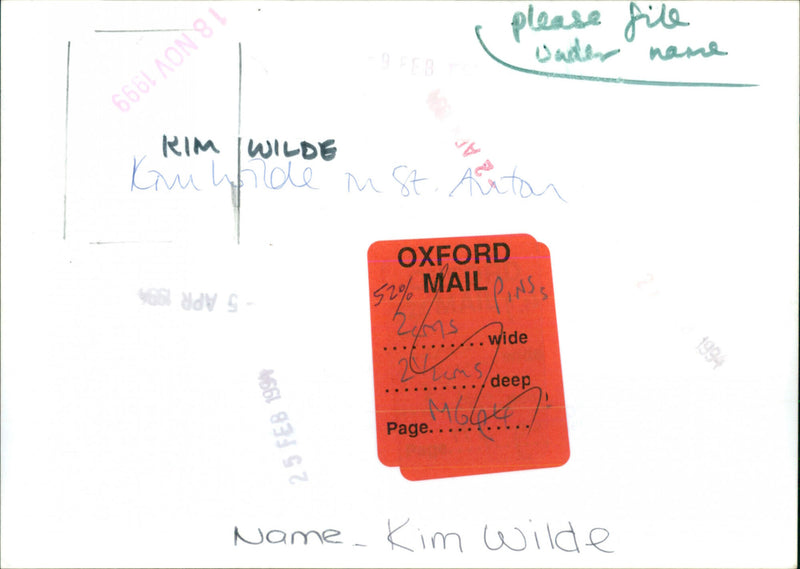 please file
under name
18 NOV 1999
9 FEB
KIM WILDE
Kim Wilde in St. Anton
OXFORD
MAIL
52% PINS
2cms wide
deep
Page
- 5 APR 1994
1994
25 FEB 1994
Name - Kim Wilde